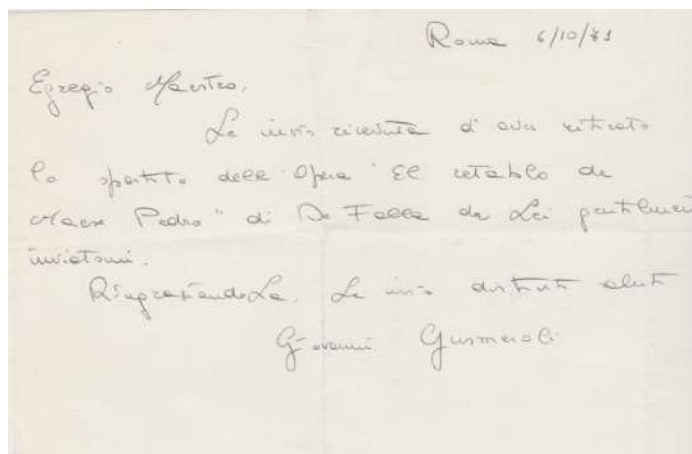 Roma 6/10/81
Egregio Maestro,
Le invio ricevuta di aver ritirato
lo spartito dell'Opera "El retablo de
Maese Pedro" di De Falla da Lei gentilmente
inviatomi.
RingraziandoLa, Le invio distinti saluti
Giovanni Gusmeroli